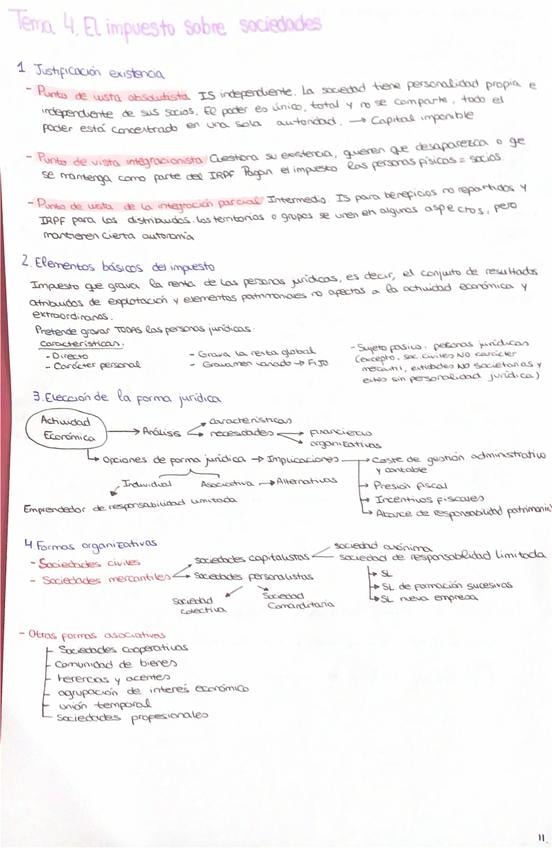 Tema 4. El impuesto sobre sociedades
1 Justificación existencia
- Punto de vista absolutista IS independiente. La sociedad tiene personalidad propia e
independiente de sus socios. El poder es único, total y no se comparte, todo el
poder está concentrado en una sola autoridad. → Capital imponible
- Punto de vista integracionista Cuestiona su existencia, quieren que desaparezca o qe
se mantenga como parte del IRPF Pagan el impuesto las personas físicas = socios
- Punto de vista de la integración parcial Intermedio. IS para beneficios no repartidos y
IRPF para los distribuidos. Los territorios o grupos se unen en algunos aspectos, pero
mantienen cierta autonomía
2. Elementos básicos del impuesto
Impuesto que grava la renta de las personas jurídicas, es decir, el conjunto de resultados
atribuidos de explotación y elementos patrimoniales no afectos a la actividad económica y
extraordinarios.
Pretende gravar TODAS las personas jurídicas.
Características:
- Directo
- Carácter personal
- Grava la renta global
- Gravamen variado → Fijo
- Sujeto pasivo: personas jurídicas
(excepto, soc. civiles NO carácter
mercantil, entidades NO societarias y
entes sin personalidad jurídica)
3. Elección de la forma jurídica
Actividad
Económica
→ Análisis
características
necesidades
financieras
organizativas
Opciones de forma jurídica → Implicaciones
Coste de gestión administrativo
y contable
Presión fiscal
Incentivos fiscales
Alcance de responsabilidad patrimonial
Individual
Asociativa → Alternativas
Emprendedor de responsabilidad limitada
4 Formas organizativas
- Sociedades civiles
- Sociedades mercantiles
sociedades capitalistas
sociedad anónima
sociedad de responsabilidad limitada
SL
SL de formación sucesivas
SL nueva empresa
sociedades personalistas
Sociedad
colectiva
Sociedad
Comanditaria
- Otras formas asociativas
Sociedades cooperativas
Comunidad de bienes
herencias y acentes
agrupación de interés económico
unión temporal
sociedades profesionales
11.